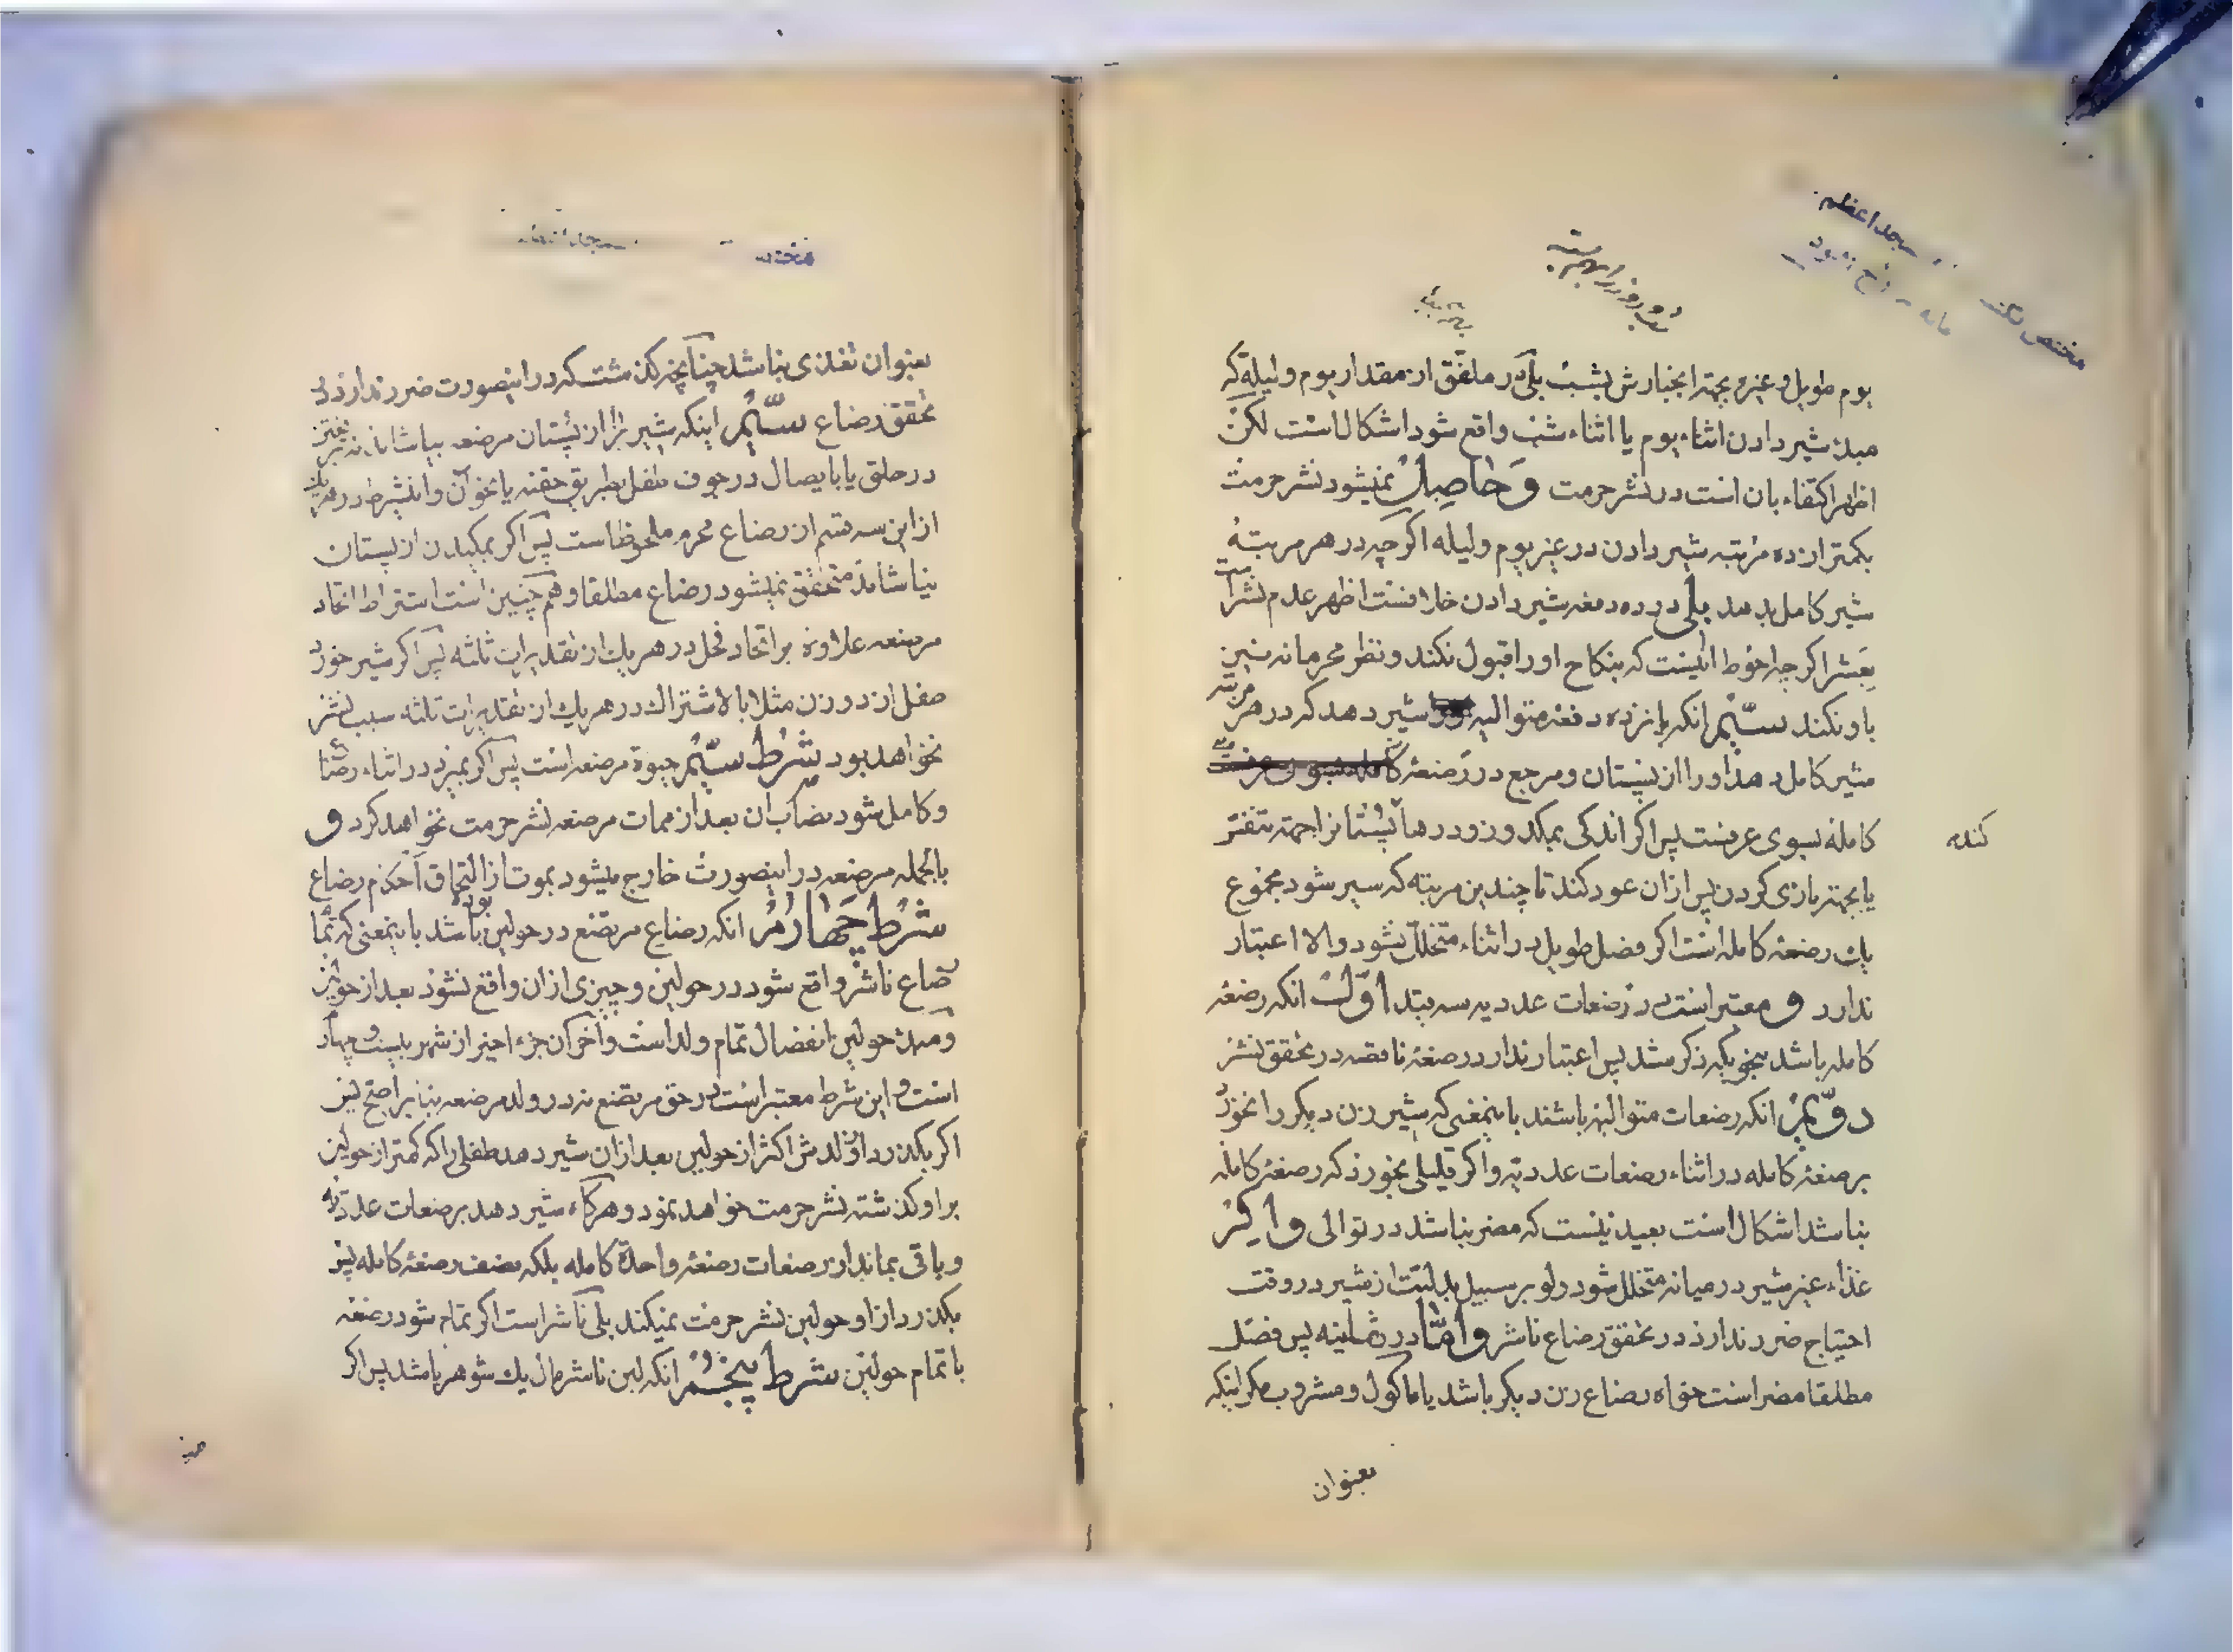 یوم طویل و غیره بجهة انجبارش بشب بلی در ملفق از مقدار یوم و لیله که
مبدء شیر دادن اثناء یوم یا اثناء شب واقع شود اشکال است لکن
اظهر اکتفاء بان است در نشر حرمت و حاصل نمیشود نشر حرمت
بکمتر از ده مرتبه شیر دادن در غیر یوم و لیله اگر چه در هر مرتبه
شیر کامل بدهد بلی در ده دفعه شیر دادن خلافست اظهر عدم نشر است
بعشر اگر چه احوط اینست که بنکاح او را قبول نکند و نظر محرمانه نیز
باو نکند سیّم انکه پانزده دفعه متوالیه شیر دهد که در هر مرتبه
شیر کامل دهد او را از پستان و مرجع در رضعهٔ
کامله بسوی عرفست پس اگر اندکی بمکد و زود رها پستانرا جهة تنفّس
کنده
یا بجهة بازی کردن پس ازان عود کند تا چندین مرتبه که سیر شود مجموع
یک رضعه کامله است اگر فصل طویل در اثناء متخلل نشود و الا اعتبار
ندارد و معتبر است در رضعات عددیه سه قید اوّل انکه رضعه
کامله باشد بنحویکه ذکر شد پس اعتبار ندارد رضعهٔ ناقصه در تحقق نشر
دوّیم انکه رضعات متوالیه باشند باینمعنی که شیر زن دیگر را نخورد
برضعهٔ کامله در اثناء رضعات عددیه و اگر قلیلی بخورد که رضعهٔ کامله
نباشد اشکال است بعید نیست که مضر نباشد در توالی و اگر
غذاء غیر شیر در میانه متخلل شود و لو بر سبیل بدلیّت از شیر در وقت
احتیاج ضرر ندارد در تحقق رضاع ناشر و امّا در زمانیه پس فصل
مطلقا مضر است خواه رضاع زن دیگر باشد یا ماکول و مشروب مگر اینکه
بعنوان
بعنوان تغذی نباشد چنانچه گذشت که در اینصورت ضرر ندارد در
تحقق رضاع سیّم اینکه شیر را از پستان مرضعه بیاشامد نه بریختن
در حلق یا بایصال در جوف طفل بطریق حقنه یا نحو آن و اینشرط در هر یک
از این سه قسم از رضاع محرم ملحوظ است پس اگر بمکیدن از پستان
نیاشامد متحقق نمیشود رضاع مطلقا و هم چنین است اشتراط اتحاد
مرضعه علاوه بر اتحاد فحل در هر یک از تقدیرات ثلثه پس اگر شیر خورد
طفل از دو زن مثلا بالاشتراک در هر یک از تقدیرات ثلثه سبب نشر
نخواهد بود شرط سیّم حیوة مرضعه است پس اگر بمیرد در اثناء رضاع
و کامل شود نصاب ان بعد از ممات مرضعه نشر حرمت نخواهد کرد و
بالجمله مرضعه در اینصورت خارج میشود بموت از التحاق احکام رضاع
شرط چهارم انکه رضاع مرتضع در حولین بوده باشد باینمعنی که تمام
رضاع ناشر واقع شود در حولین و چیزی ازان واقع نشود بعد از حولین
و مبدء حولین انفصال تمام ولد است و آخر آن جزء اخیر از شهر بیست و چهارم
است و این شرط معتبر است در حق مرتضع نه در ولد مرضعه بنابر اصح پس
اگر بگذرد از ولدش اکثر از حولین بعد ازان شیر دهد طفلی را که کمتر از حولین
بر او گذشته نشر حرمت خواهد نمود و هرگاه شیر دهد برضعات عددیه
و باقی بماند از رضعات رضعهٔ واحدة کامله بلکه نصف رضعهٔ کامله پس
بگذرد از او حولین نشر حرمت نمیکند بلی ناشر است اگر تمام شود رضعه
با تمام حولین شرط پنجم انکه لبن ناشر مال یک شوهر باشد پس اگر